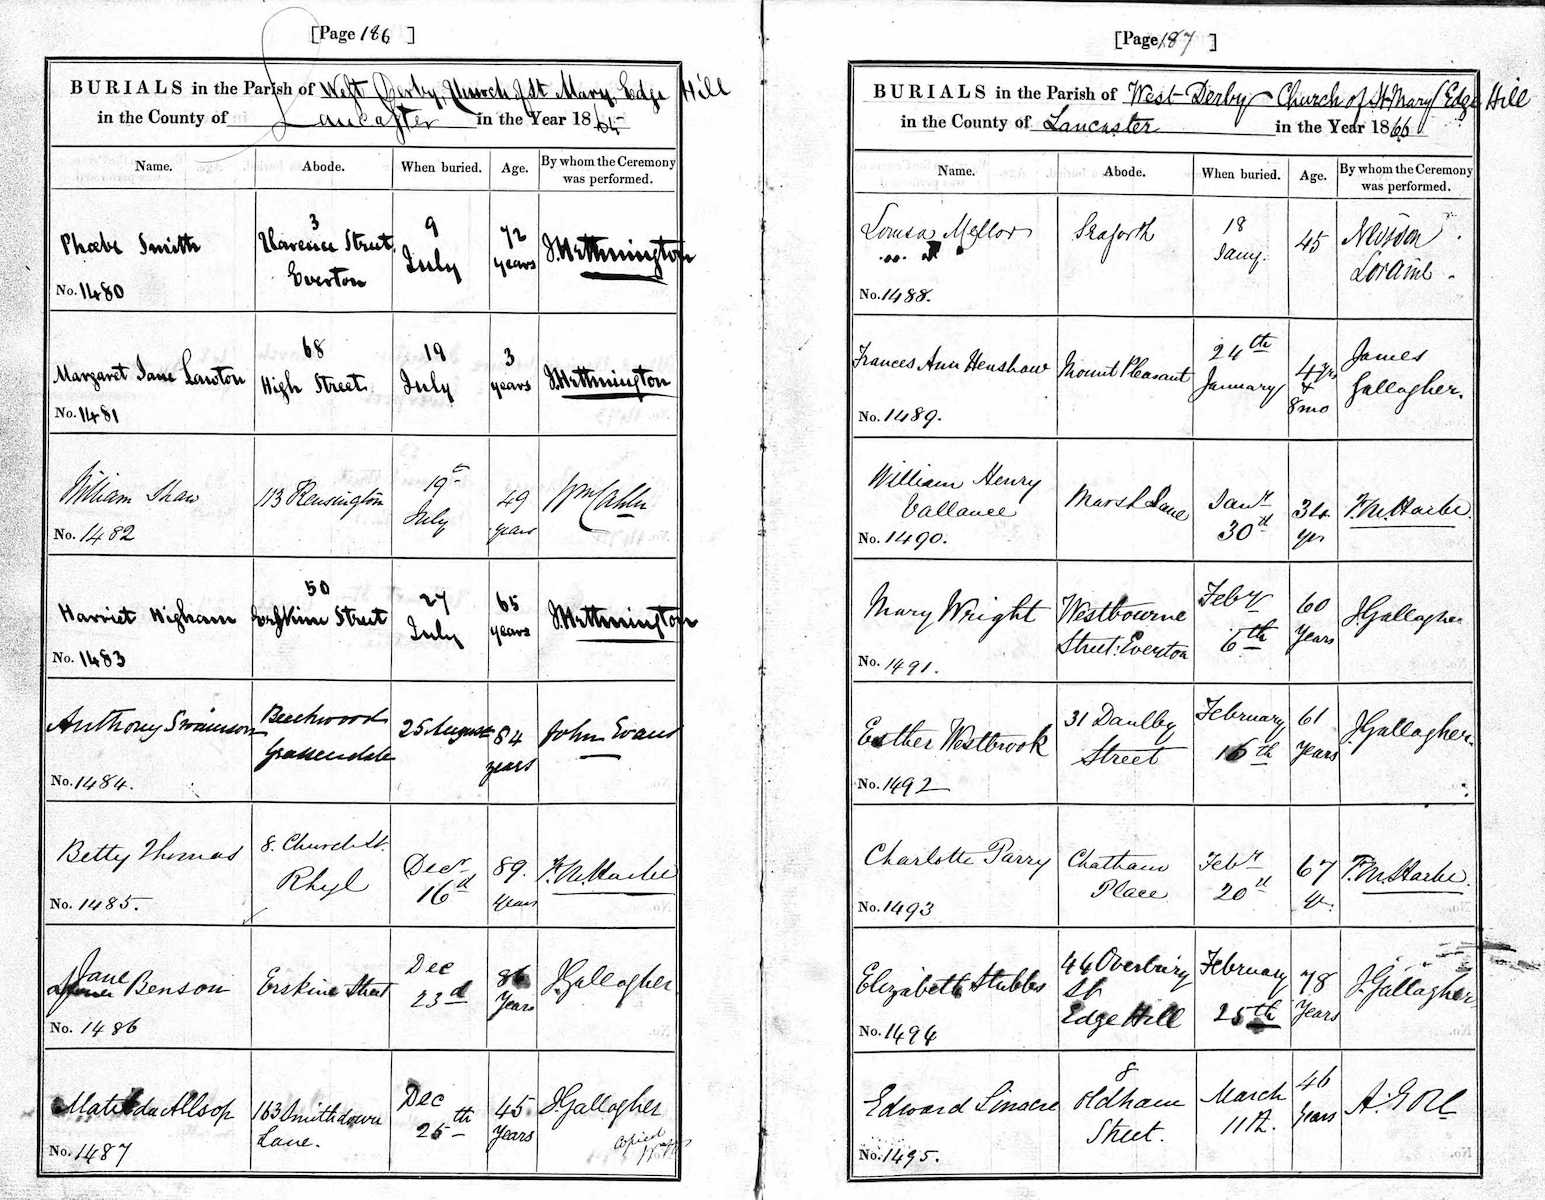 [Page 186 ]
BURIALS in the Parish of West Derby, Church of St Mary, Edge Hill
in the County of Lancaster in the Year 1865
Name. Abode. When buried. Age. By whom the Ceremony was performed.
Phœbe Smith
3
Clarence Street,
Everton
9
July
72
years
No. 1480
Margaret Jane Lawton
68
High Street
19
July
3
years
No. 1481
William Shaw
113 Kensington
19th
July
49
years
No. 1482
Harriet Higham
50
Erskine Street
27
July
65
years
No. 1483
Anthony Swainson
Beechwood
Grassendale
25 August
84
years
John Evans
No. 1484.
Betty Thomas
8. Church St.
Rhyl
Decr
16d
89.
years
No. 1485.
Jane
Benson
Erskine Street
Dec
23d
86
Years
J. Gallagher
No. 1486
Matilda Allsop
163 Smithdown
Lane.
Dec
25th
45
Years
J. Gallagher
copied
No. 1487
[Page 187 ]
BURIALS in the Parish of West Derby Church of St Mary Edge Hill
in the County of Lancaster in the Year 1866
Name. Abode. When buried. Age. By whom the Ceremony was performed.
Louisa Mellor
Seaforth
18
Jany.
45
Newson
Loraine.
No. 1488.
Frances Ann Henshaw
Mount Pleasant
24th
January
4 yrs
+
8 mo
James
Gallagher.
No. 1489.
William Henry
Vallance
Marsh Lane
Janr
30d
34
yrs
No. 1490.
Mary Wright
Westbourne
Street. Everton
Feby
6th
60
Years
J. Gallagher
No. 1491.
Esther Westbrook
31 Daulby
Street
February
16th
61
Years
J. Gallagher.
No. 1492
Charlotte Parry
Chatham
Place
Febr
20d
67
No. 1493
Elizabeth Stubbs
44 Overbury
St
Edge Hill
February
25th
78
Years
J. Gallagher
No. 1494
Edward Linacre
8
Oldham
Street.
March
11th.
46
Years
No. 1495.